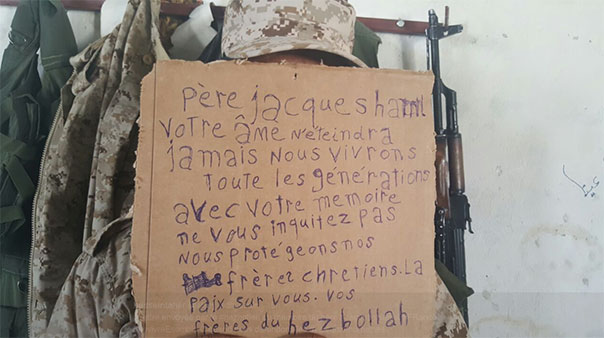 Père jacques hamel
votre âme n'éteindra
jamais nous vivrons
toute les générations
avec votre memoire
ne vous inquitez pas
nous protégeons nos
frères chretiens. La
paix sur vous. vos
frères du hezbollah